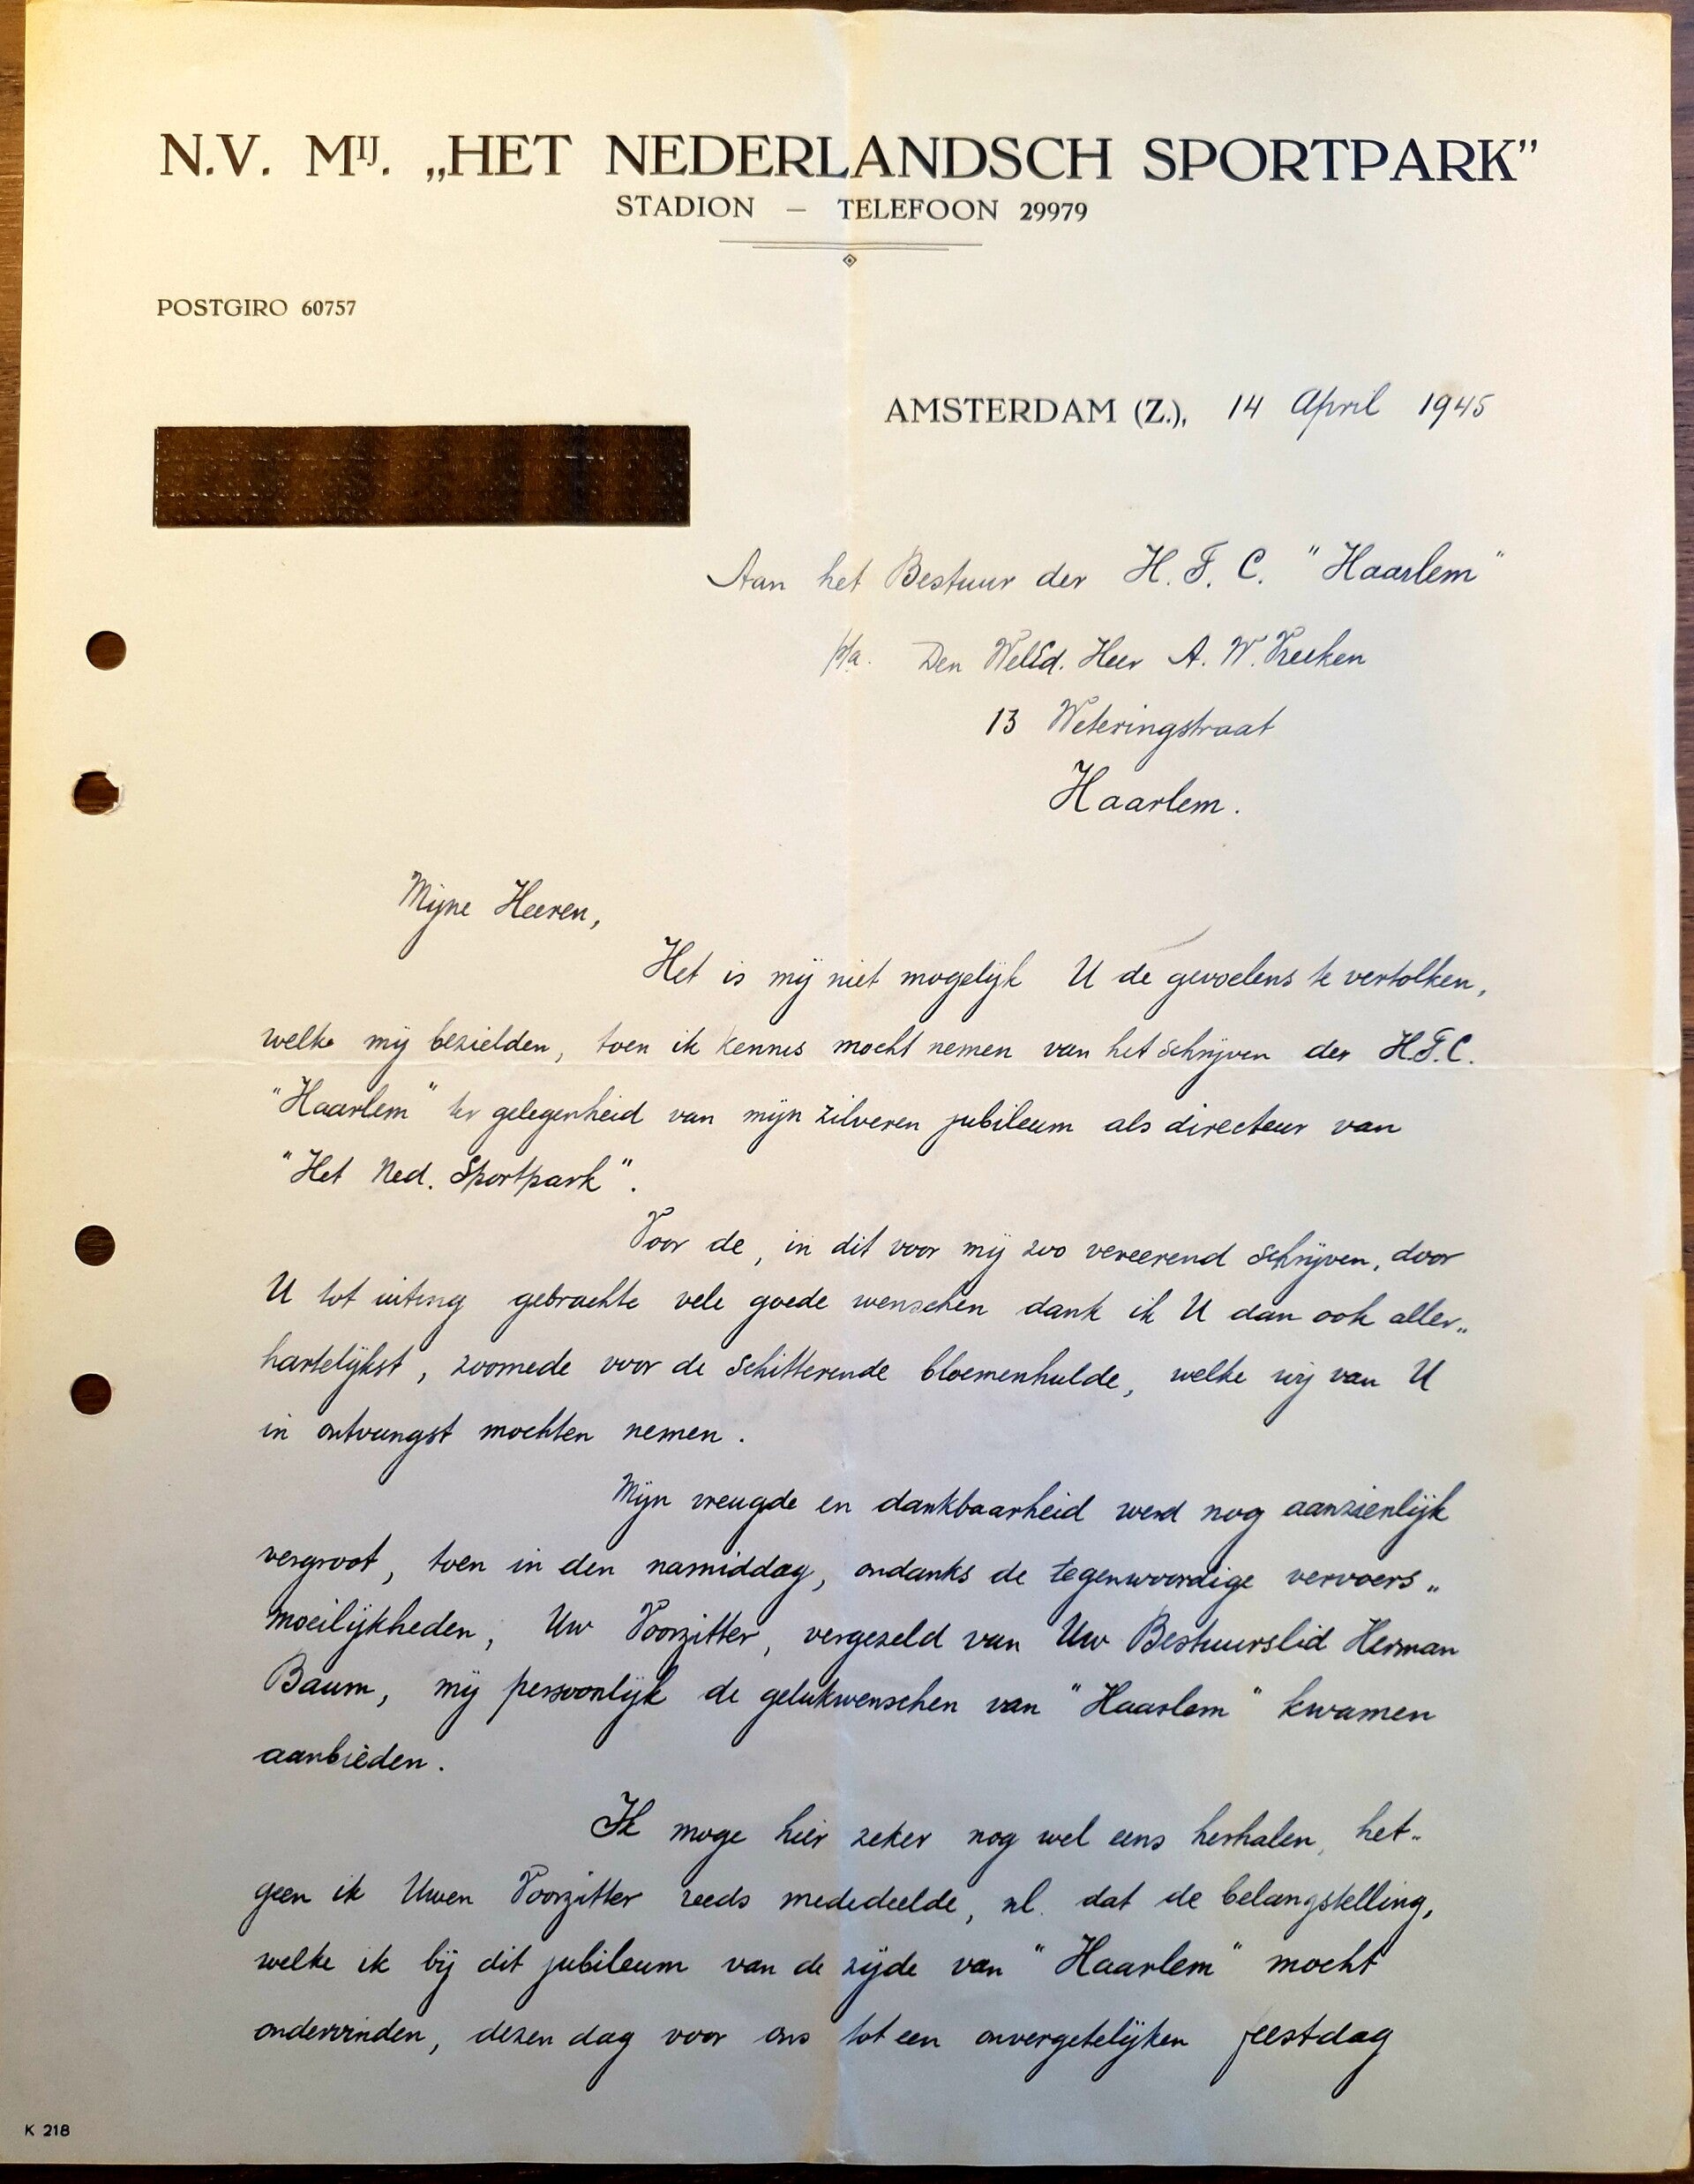 N.V. MIJ. „HET NEDERLANDSCH SPORTPARK”
STADION — TELEFOON 29979
POSTGIRO 60757
AMSTERDAM (Z.), 14 April 1945
Aan het Bestuur der H. F. C. "Haarlem"
p/a. Den WelEd. Heer A. W. Vreeken
13 Weteringstraat
Haarlem.
Mijne Heeren,
Het is mij niet mogelijk U de gevoelens te vertolken,
welke mij bezielden, toen ik kennis mocht nemen van het schrijven der H.F.C.
"Haarlem" ter gelegenheid van mijn zilveren jubileum als directeur van
"Het Ned. Sportpark".
Voor de, in dit voor mij zoo vereerend schrijven, door
U tot uiting gebrachte vele goede wenschen dank ik U dan ook aller„
hartelijkst, zoomede voor de schitterende bloemenhulde, welke wij van U
in ontvangst mochten nemen.
Mijn vreugde en dankbaarheid werd nog aanzienlijk
vergroot, toen in den namiddag, ondanks de tegenwoordige vervoers„
moeilijkheden, Uw Voorzitter, vergezeld van Uw Bestuurslid Herman
Baum, mij persoonlijk de gelukwenschen van "Haarlem" kwamen
aanbieden.
Ik moge hier zeker nog wel eens herhalen, het„
geen ik Uwen Voorzitter reeds mededeelde, nl. dat de belangstelling,
welke ik bij dit jubileum van de zijde van "Haarlem" mocht
ondervinden, dezen dag voor ons tot een onvergetelijken feestdag
K 218